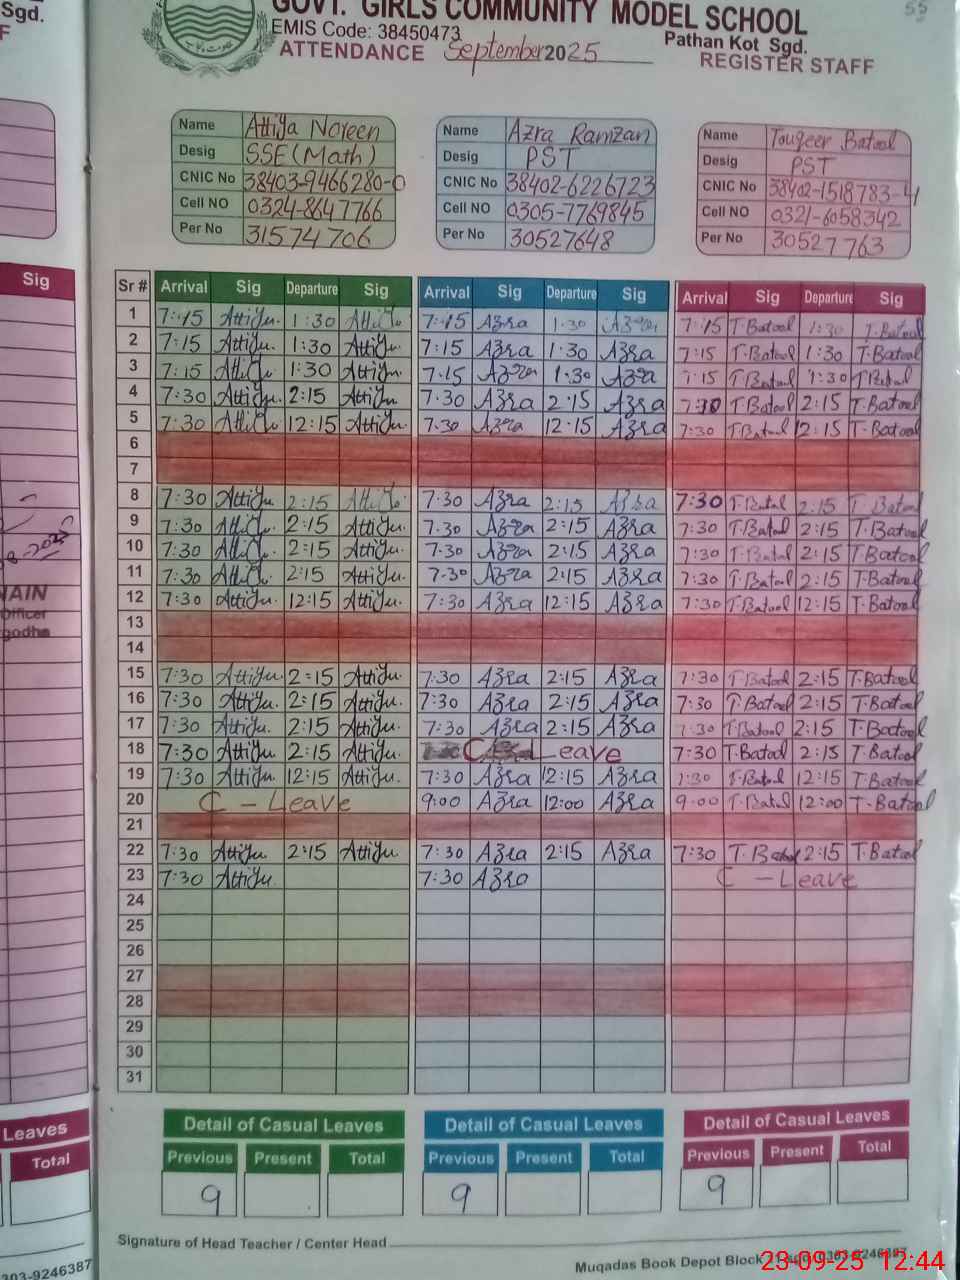 Sgd.
F
55
GOVT. GIRLS COMMUNITY MODEL SCHOOL
EMIS Code: 38450473
Pathan Kot Sgd.
ATTENDANCE September 2025 REGISTER STAFF
Name Attiya Noreen
Desig SSE (Math)
CNIC No 38403-9466280-0
Cell NO 0324-8647766
Per No 31574706
Name Azra Ramzan
Desig PST
CNIC No 38402-6226723
Cell NO 0305-7769845
Per No 30527648
Name Touqeer Batool
Desig PST
CNIC No 38402-1518783-4
Cell NO 0321-6058342
Per No 30527763
Sig
Sr # Arrival Sig Departure Sig Arrival Sig Departure Sig Arrival Sig Departure Sig
1 7:15 Attiya 1:30 Attiya 7:15 Azra 1:30 Azra 7:15 T.Batool 1:30 T.Batool
2 7:15 Attiya 1:30 Attiya 7:15 Azra 1:30 Azra 7:15 T.Batool 1:30 T.Batool
3 7:15 Attiya 1:30 Attiya 7:15 Azra 1:30 Azra 7:15 T.Batool 1:30 T.Batool
4 7:30 Attiya 2:15 Attiya 7:30 Azra 2:15 Azra 7:30 T.Batool 2:15 T.Batool
5 7:30 Attiya 12:15 Attiya 7:30 Azra 12:15 Azra 7:30 T.Batool 12:15 T.Batool
6
7
8 7:30 Attiya 2:15 Attiya 7:30 Azra 2:15 Azra 7:30 T.Batool 2:15 T.Batool
9 7:30 Attiya 2:15 Attiya 7:30 Azra 2:15 Azra 7:30 T.Batool 2:15 T.Batool
10 7:30 Attiya 2:15 Attiya 7:30 Azra 2:15 Azra 7:30 T.Batool 2:15 T.Batool
11 7:30 Attiya 2:15 Attiya 7:30 Azra 2:15 Azra 7:30 T.Batool 2:15 T.Batool
12 7:30 Attiya 12:15 Attiya 7:30 Azra 12:15 Azra 7:30 T.Batool 12:15 T.Batool
13
14
15 7:30 Attiya 2:15 Attiya 7:30 Azra 2:15 Azra 7:30 T.Batool 2:15 T.Batool
16 7:30 Attiya 2:15 Attiya 7:30 Azra 2:15 Azra 7:30 T.Batool 2:15 T.Batool
17 7:30 Attiya 2:15 Attiya 7:30 Azra 2:15 Azra 7:30 T.Batool 2:15 T.Batool
18 7:30 Attiya 2:15 Attiya C Leave 7:30 T.Batool 2:15 T.Batool
19 7:30 Attiya 12:15 Attiya 7:30 Azra 12:15 Azra 7:30 T.Batool 12:15 T.Batool
20 C - Leave 9:00 Azra 12:00 Azra 9:00 T.Batool 12:00 T.Batool
21
22 7:30 Attiya 2:15 Attiya 7:30 Azra 2:15 Azra 7:30 T.Batool 2:15 T.Batool
23 7:30 Attiya 7:30 Azra C - Leave
24
25
26
27
28
29
30
31
Officer
Leaves
Total
Detail of Casual Leaves
Previous Present Total
9
Detail of Casual Leaves
Previous Present Total
9
Detail of Casual Leaves
Previous Present Total
9
Signature of Head Teacher / Center Head
303-9246387
Muqadas Book Depot Block 0303-9246387
23-09-25 12:44